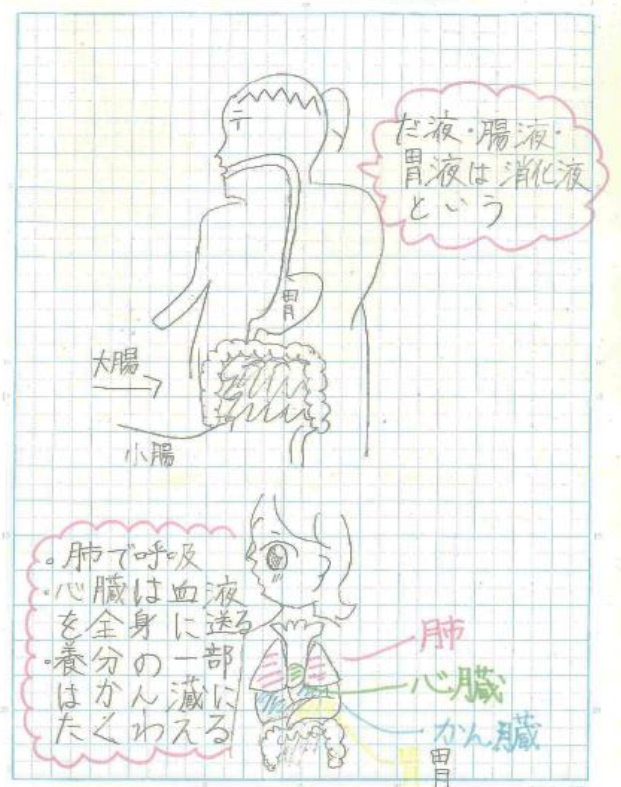 だ液・腸液・
胃液は消化液
という
胃
大腸
小腸
・肺で呼吸
・心臓は血液
を全身に送る
・養分の一部
はかん臓に
たくわえる
肺
心臓
かん臓
胃